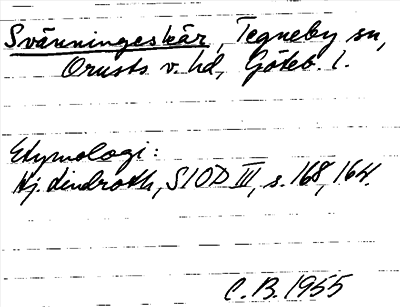 Svänningeskär, Tegneby sn,
Orusts v. hd, Göteb. l.
Etymologi:
Hj. Lindroth, SIOD III, s. 168, 164.
C. B. 1955